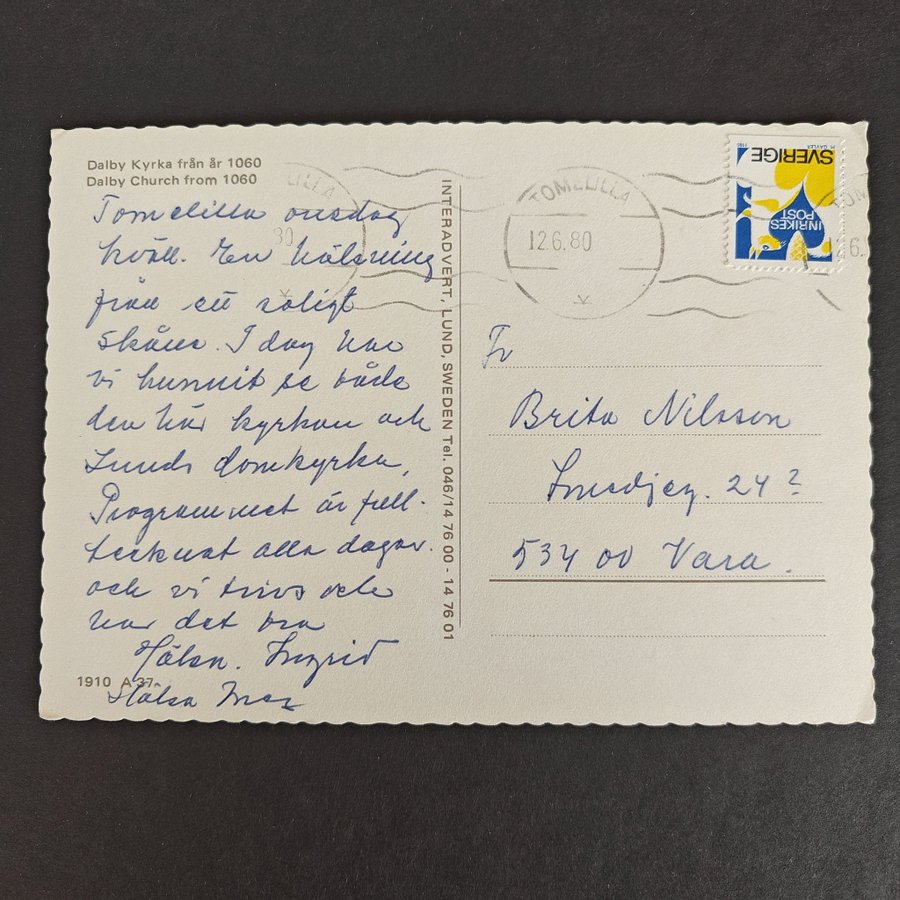 Dalby Kyrka från år 1060
Dalby Church from 1060
Tomelilla onsdag
kväll. En hälsning
från ett soligt
Skåne. I dag har
vi hunnit se både
den här kyrkan och
Lunds domkyrka,
Programmet är full-
tecknat alla dagar.
och vi trivs och
har det bra
Hälsn. Ingrid
Hälsa Inez
1910 A 37
INTERADVERT, LUND, SWEDEN Tel. 046/14 76 00 - 14 76 01
LILLA
80
TOMELILLA
12.6.80
SVERIGE
INRIKES
POST
TOM
12.6.
Fr
Brita Nilsson
Smedjeg. 24 ?
534 00 Vara.